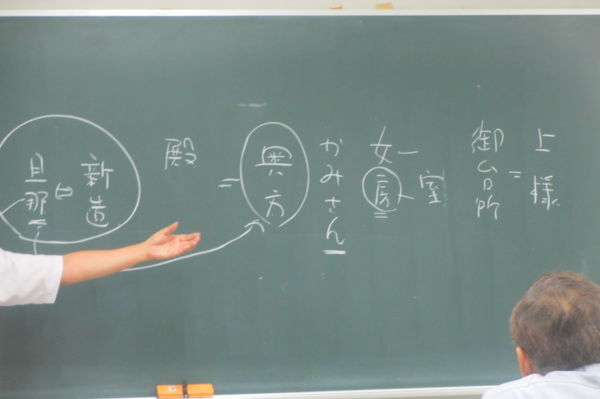 上様
=
御台所
女房
室
かみさん
奥方
=
殿
新造
旦那